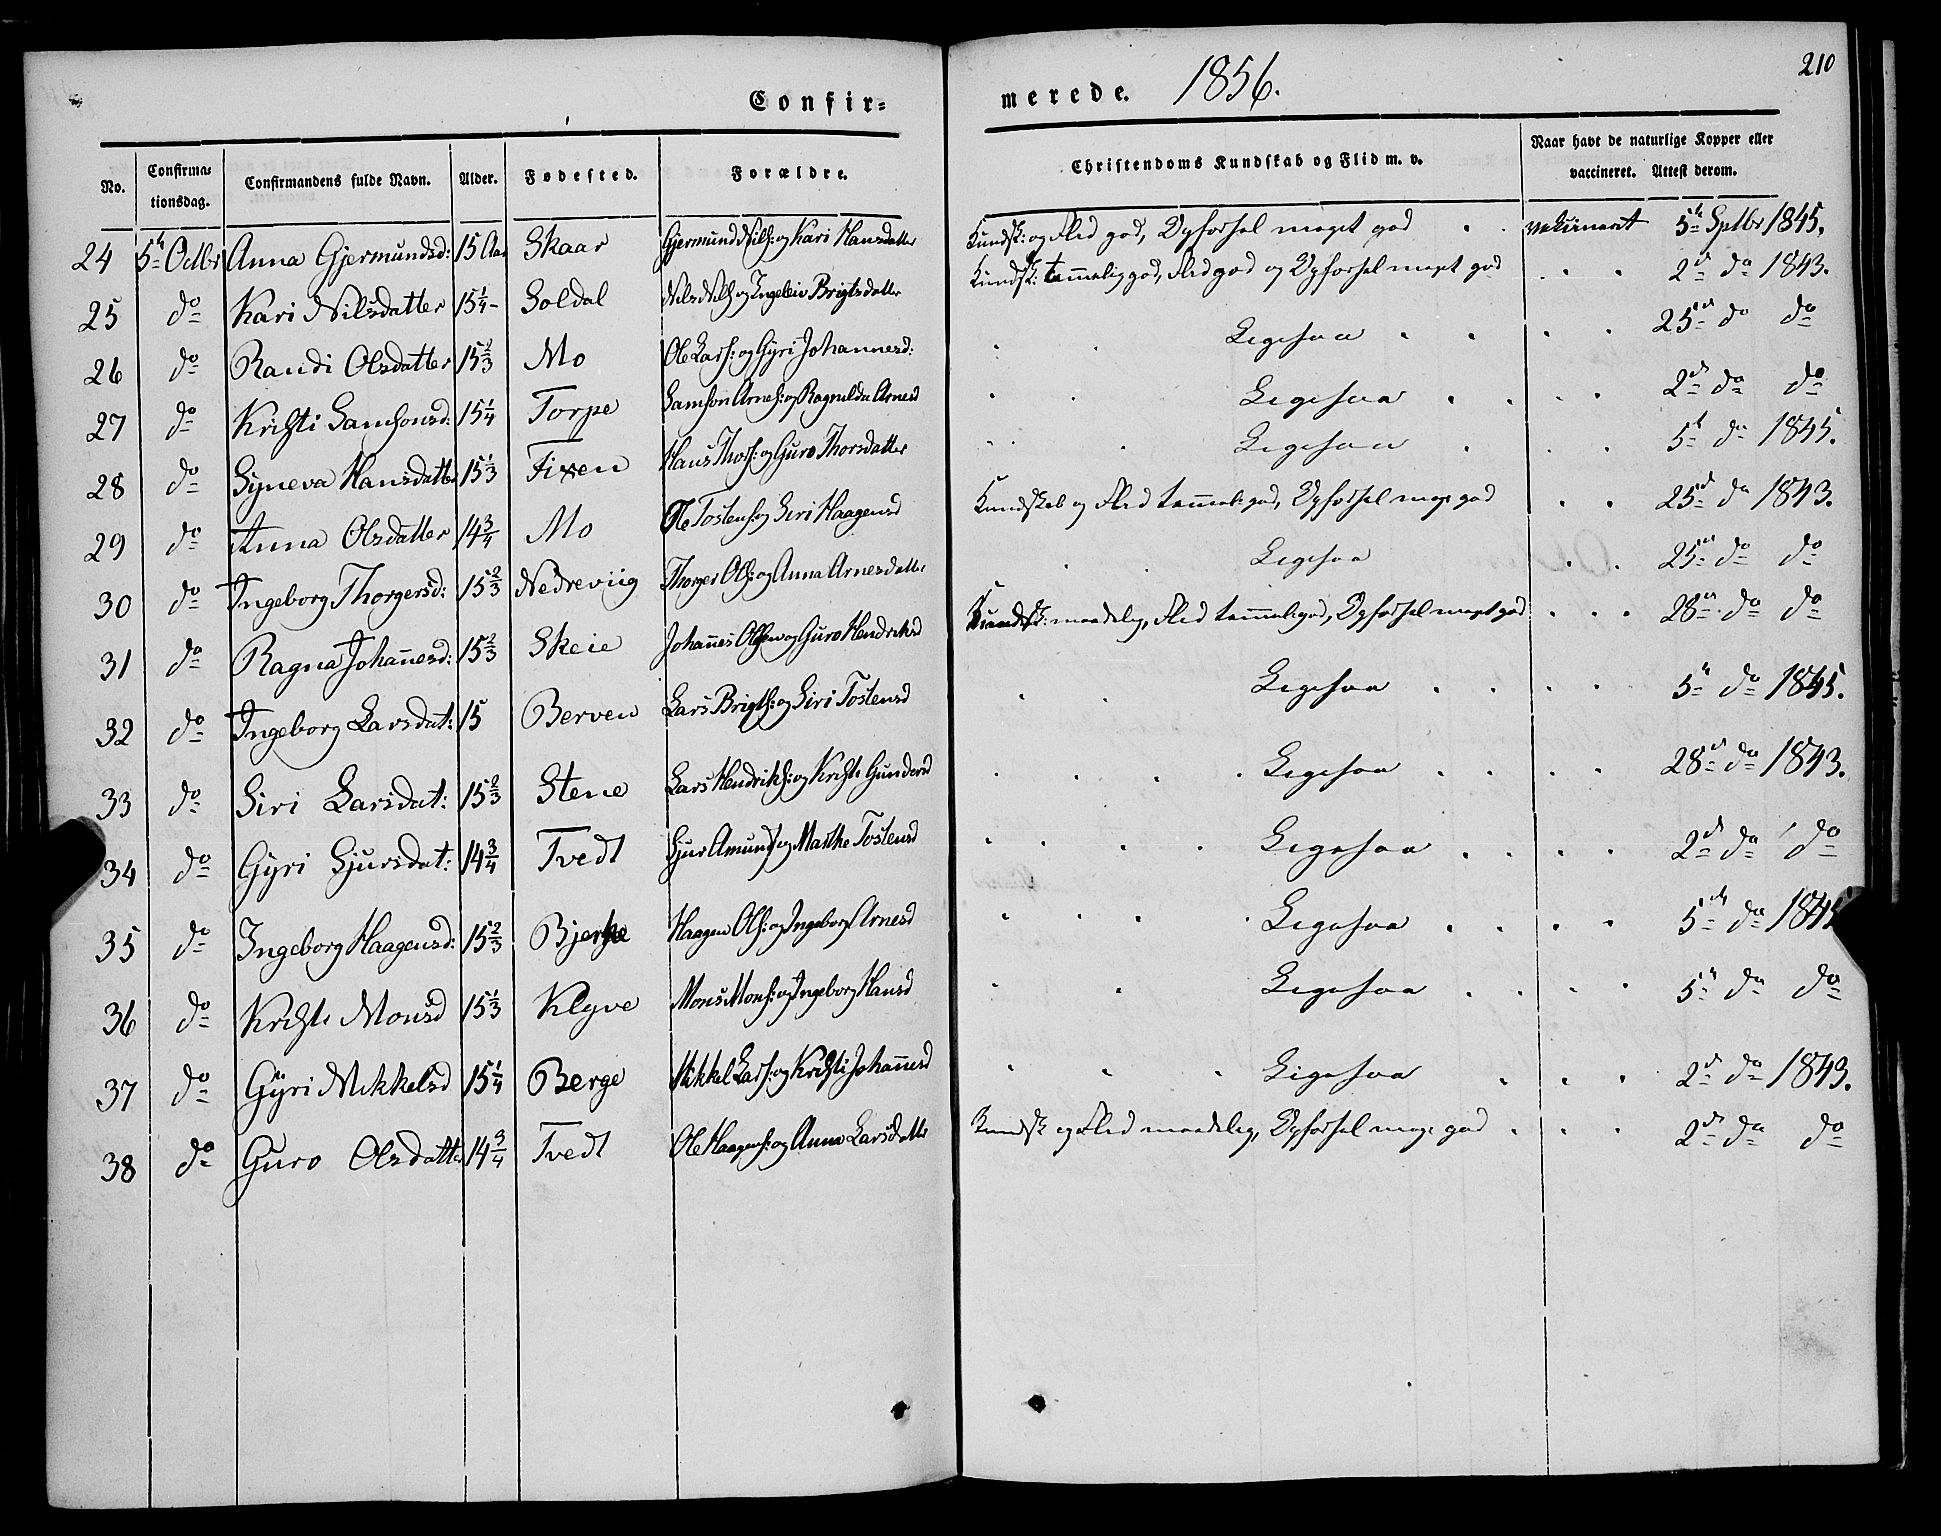 210
Confir-
merede. 1856.
No. Confirma- tionsdag. Confirmandens fulde Navn. Alder. Fødested. Forældre. Christendoms Kundskab og Flid m. v. Naar havt de naturlige Kopper eller vaccineret. Attest derom.
24 5te Octbr Anna Gjermundsd: 15 Aar Skaar Gjermund Nils: og Kari Hansdatter Kundsk: og Flid god, Opførsel meget god vakcineret 5te Sptbr 1845.
25 do Kari Nilsdatter 15 1/4 - Soldal Nils Nils: og Ingeleiv Brigtsdatter Kundsk: temmelig god, Flid god og Opførsel meget god 2den do 1843.
26 do Randi Olsdatter 15 2/3 Mo Ole Lars: og Gyri Johannesd: Ligesaa 25de do do
27 do Kristi Samsonsd: 15 1/4 Torpe Samson Arnes: og Ragnilda Arnesd Ligesaa 2den do do
28 do Syneva Hansdatter 15 1/3 Fixen Hans Thors: og Guro Thorsdatter Ligesaa 5te do 1845.
29 do Anna Olsdatter 14 3/4 Mo Ole Tostens: og Siri Haagensd Kundskab og Flid temmeligod, Opførsel meget god 25de do 1843.
30 do Ingeborg Thorgersd: 15 2/3 Nedreviig Thorger Ols: og Anna Arnesdatter Ligesaa 25de do do
31 do Ragna Johan̄esd: 15 2/3 Skeie Johan̄es Olsen og Guro Hendriksd Kundsk: maadelig, Flid temmeligod, Opførsel meget god 28de do do
32 do Ingeborg Larsdat: 15 Berven Lars Brigts: og Siri Tostensd Ligesaa 5te do 1845.
33 do Siri Larsdat: 15 2/3 Stene Lars Hendriks: og Kristi Gundersd Ligesaa 28de do 1843.
34 do Gyri Sjursdat: 14 3/4 Tvedt Sjur Amunds: og Marthe Tostensd Ligesaa 2den do do
35 do Ingeborg Haagensd: 15 2/3 Bjerke Haagen Ols: og Ingeborg Arnesd Ligesaa 5te do 1845
36 do Kristi Monsd 15 1/3 Klyve Mons Mons: og Ingeborg Hansd Ligesaa 5te do do
37 do Gyri Mikkelsd 15 1/4 Berge Mikkel Lars: og Kristi Johan̄esd Ligesaa 2den do 1843.
38 do Guro Olsdatter 14 3/4 Tvedt Ole Haagens: og Anna Larsdatter Kundsk og Flid maadelig, Opførsel meget god 2den do do